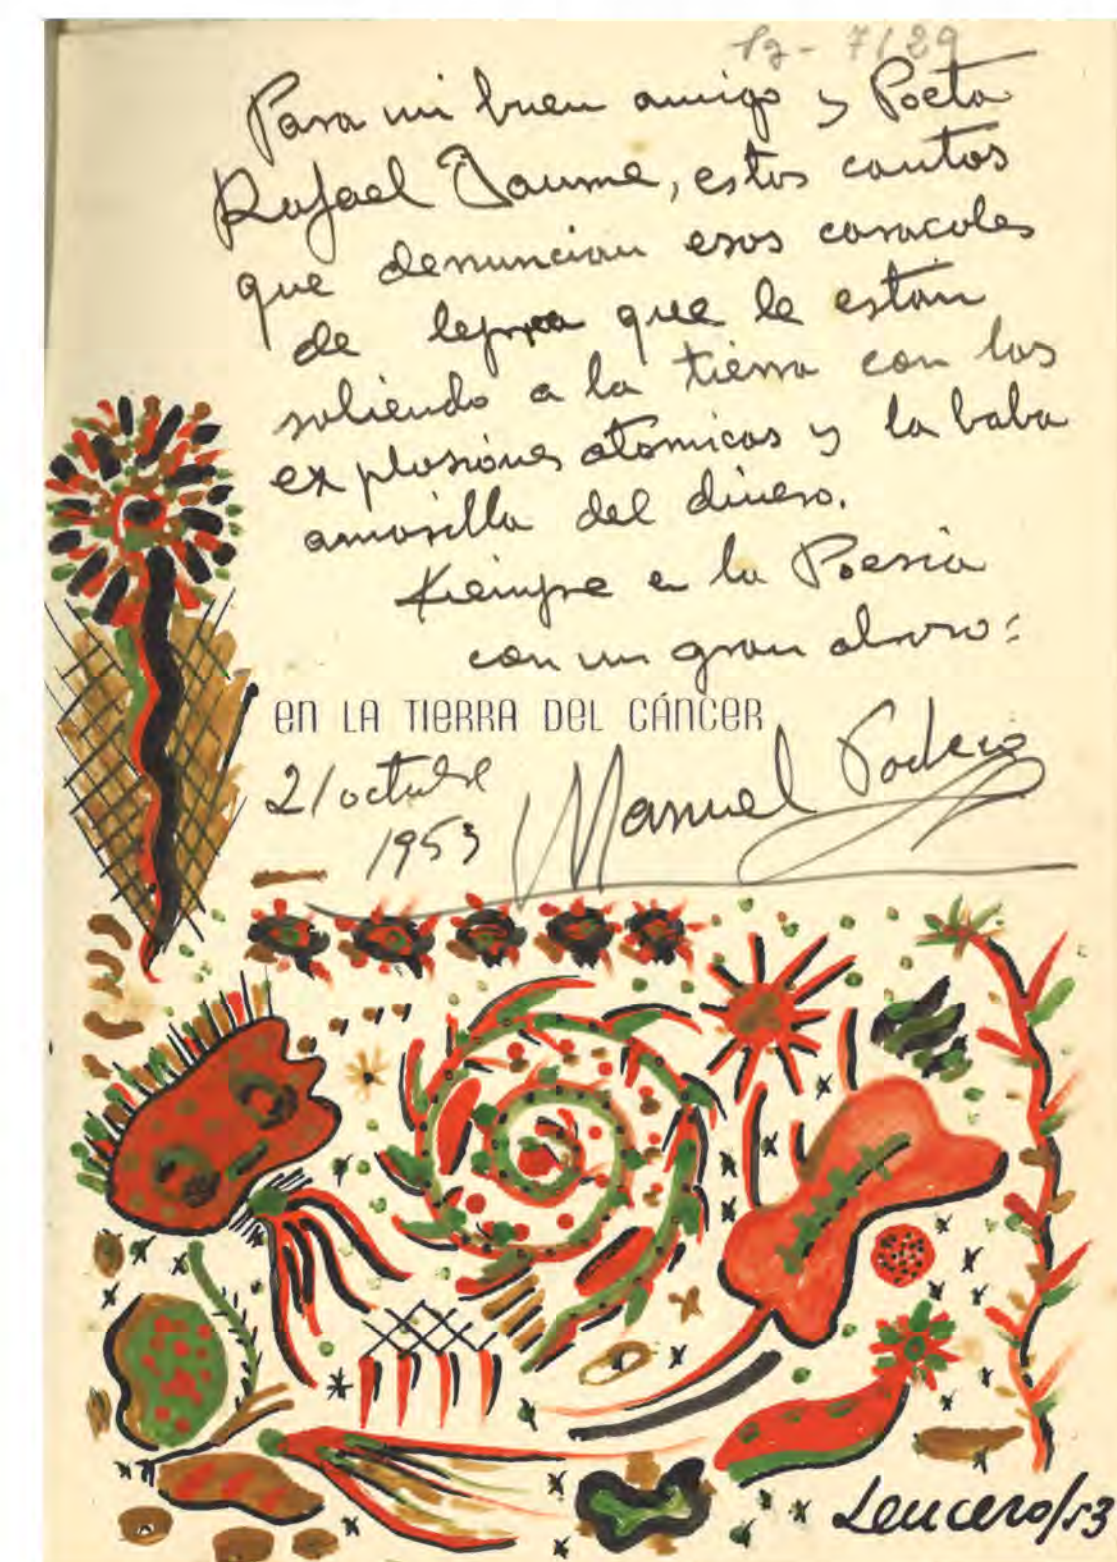 Pg - 7/29
Para mi buen amigo y Poeta
Rafael Jaume, estos cantos
que denuncian esos caracoles
de lepra que le están
saliendo a la tierra con las
explosiones atomicas y la baba
amarilla del dinero.
Siempre en la Poesia
con un gran abrazo:
en LA TIERRA DEL CÁNCER
2/octubre
1953 Manuel Pacheco
Leucero/53